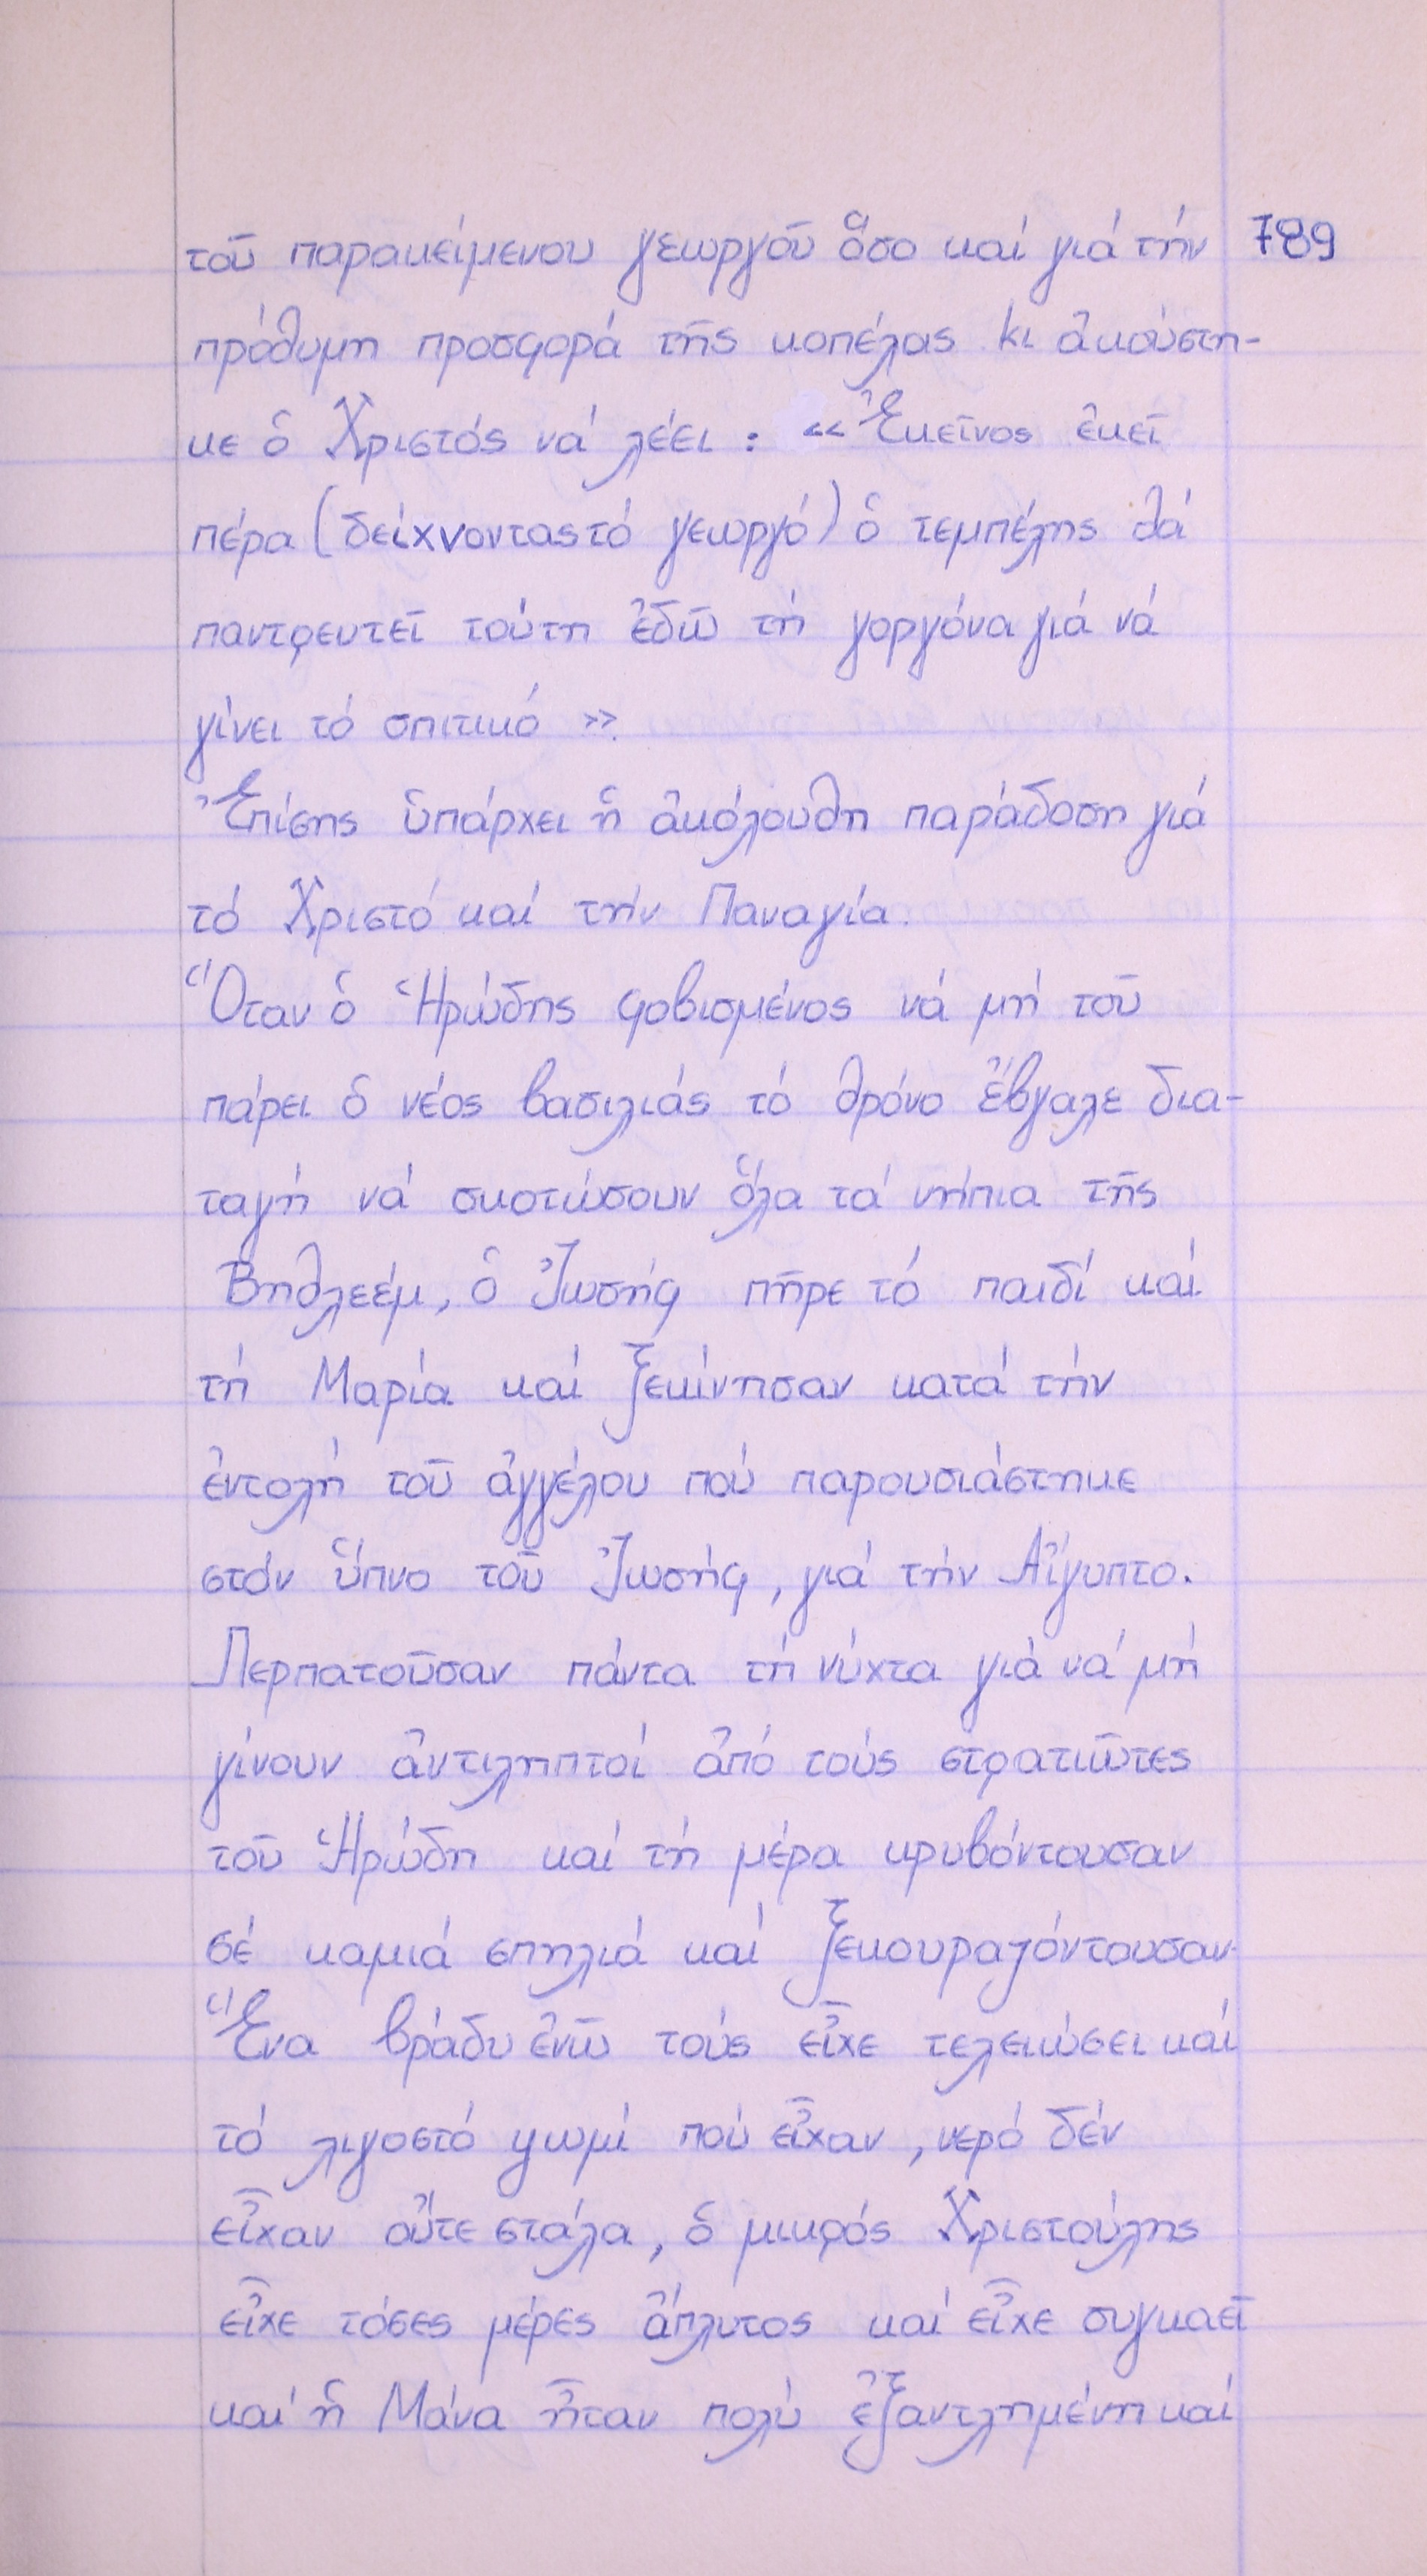 τοῦ παρακείμενου γεωργοῦ ὅσο καί γιά τήν 789
πρόθυμη προσφορά τῆς κοπέλας κι ἀκούστη-
κε ὁ Χριστός νά λέει : «Ἐκεῖνος ἐκεῖ
πέρα (δείχνοντας τό γεωργό) ὁ τεμπέλης θά
παντρευτεῖ τούτη ἐδῶ τή γοργόνα γιά νά
γίνει τό σπιτικό ».
Ἐπίσης ὑπάρχει ἡ ἀκόλουθη παράδοση γιά
τό Χριστό καί τήν Παναγία.
Ὅταν ὁ Ἡρώδης φοβισμένος νά μή τοῦ
πάρει ὁ νέος βασιλιάς τό θρόνο ἔβγαλε δια-
ταγή νά σκοτώσουν ὅλα τά νήπια τῆς
Βηθλεέμ, ὁ Ἰωσήφ πῆρε τό παιδί καί
τή Μαρία καί ξεκίνησαν κατά τήν
ἐντολή τοῦ ἀγγέλου πού παρουσιάστηκε
στόν ὕπνο τοῦ Ἰωσήφ, γιά τήν Αἴγυπτο.
Περπατοῦσαν πάντα τή νύχτα γιά νά μή
γίνουν ἀντιληπτοί ἀπό τούς στρατιῶτες
τοῦ Ἡρώδη καί τή μέρα κρυβόντουσαν
σέ καμιά σπηλιά καί ξεκουραζόντουσαν.
Ἕνα βράδυ ἐνῶ τούς εἶχε τελειώσει καί
τό λιγοστό ψωμί πού εἶχαν, νερό δέν
εἶχαν οὔτε στάλα, ὁ μικρός Χριστούλης
εἶχε τόσες μέρες ἄπλυτος καί εἶχε συγκαεῖ
καί ἡ Μάνα ἦταν πολύ ἐξαντλημένη καί